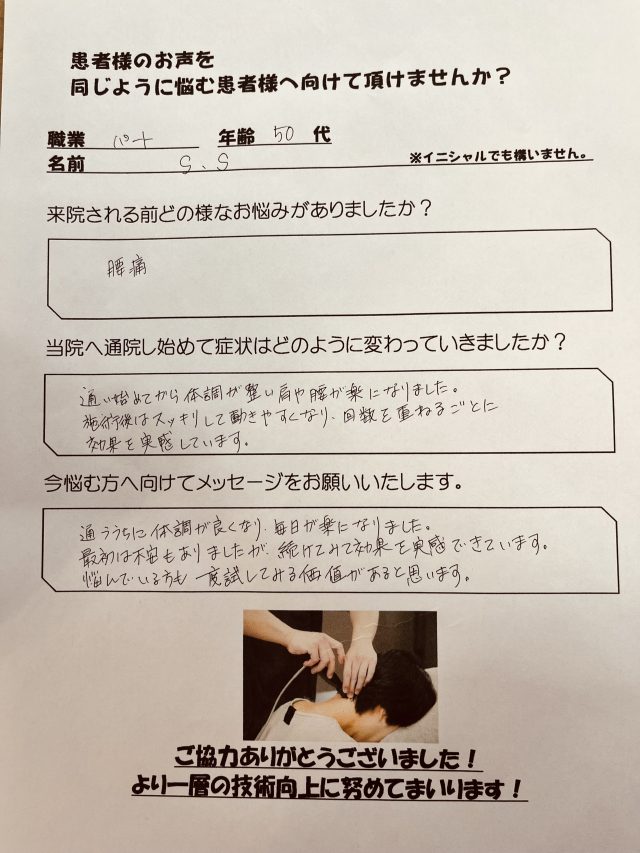 患者様のお声を
同じように悩む患者様へ向けて頂けませんか？
職業 パート 年齢 50 代
名前 S.S ※イニシャルでも構いません。
来院される前どの様なお悩みがありましたか？
腰痛
当院へ通院し始めて症状はどのように変わっていきましたか？
通い始めてから体調が整い肩や腰が楽になりました。
施術後はスッキリして動きやすくなり、回数を重ねるごとに
効果を実感しています。
今悩む方へ向けてメッセージをお願いいたします。
通ううちに体調が良くなり、毎日が楽になりました。
最初は不安もありましたが、続けてみて効果を実感できています。
悩んでいる方も一度試してみる価値があると思います。
ご協力ありがとうございました！
より一層の技術向上に努めてまいります！